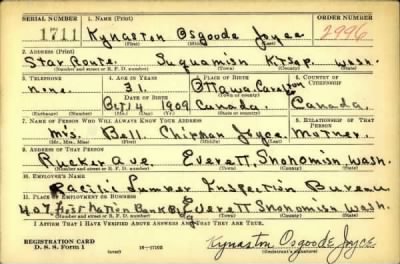 SERIAL NUMBER 1. NAME (Print) ORDER NUMBER
1711 Kynaston Osgoode Joyce 2996
(First) (Middle) (Last)
2. ADDRESS (Print)
Star Route. Suquamish Kitsap. Wash.
(Number and street or R. F. D. number) (Town) (County) (State)
3. TELEPHONE 4. AGE IN YEARS 5. PLACE OF BIRTH 6. COUNTRY OF CITIZENSHIP
none. 31. Ottawa Carleton
DATE OF BIRTH (Town or county)
Oct 14 1909 Canada. Canada.
(Mo.) (Day) (Yr.) (State or country)
7. NAME OF PERSON WHO WILL ALWAYS KNOW YOUR ADDRESS 8. RELATIONSHIP OF THAT PERSON
Mrs. Bell Chipman Joyce. Mother.
(Mr., Mrs., Miss) (First) (Middle) (Last)
9. ADDRESS OF THAT PERSON
Rucker Ave. Everett, Snohomish Wash.
(Number and street or R. F. D. number) (Town) (County) (State)
10. EMPLOYER'S NAME
Pacific Lumber Inspection Bureau
11. PLACE OF EMPLOYMENT OR BUSINESS
407 First Nation Bank Bldg Everett Snohomish Wash.
(Number and street or R. F. D. number) (Town) (County) (State)
I AFFIRM THAT I HAVE VERIFIED ABOVE ANSWERS AND THAT THEY ARE TRUE.
REGISTRATION CARD
D. S. S. Form 1 (over) Kynaston Osgoode Joyce
(Registrant's signature)